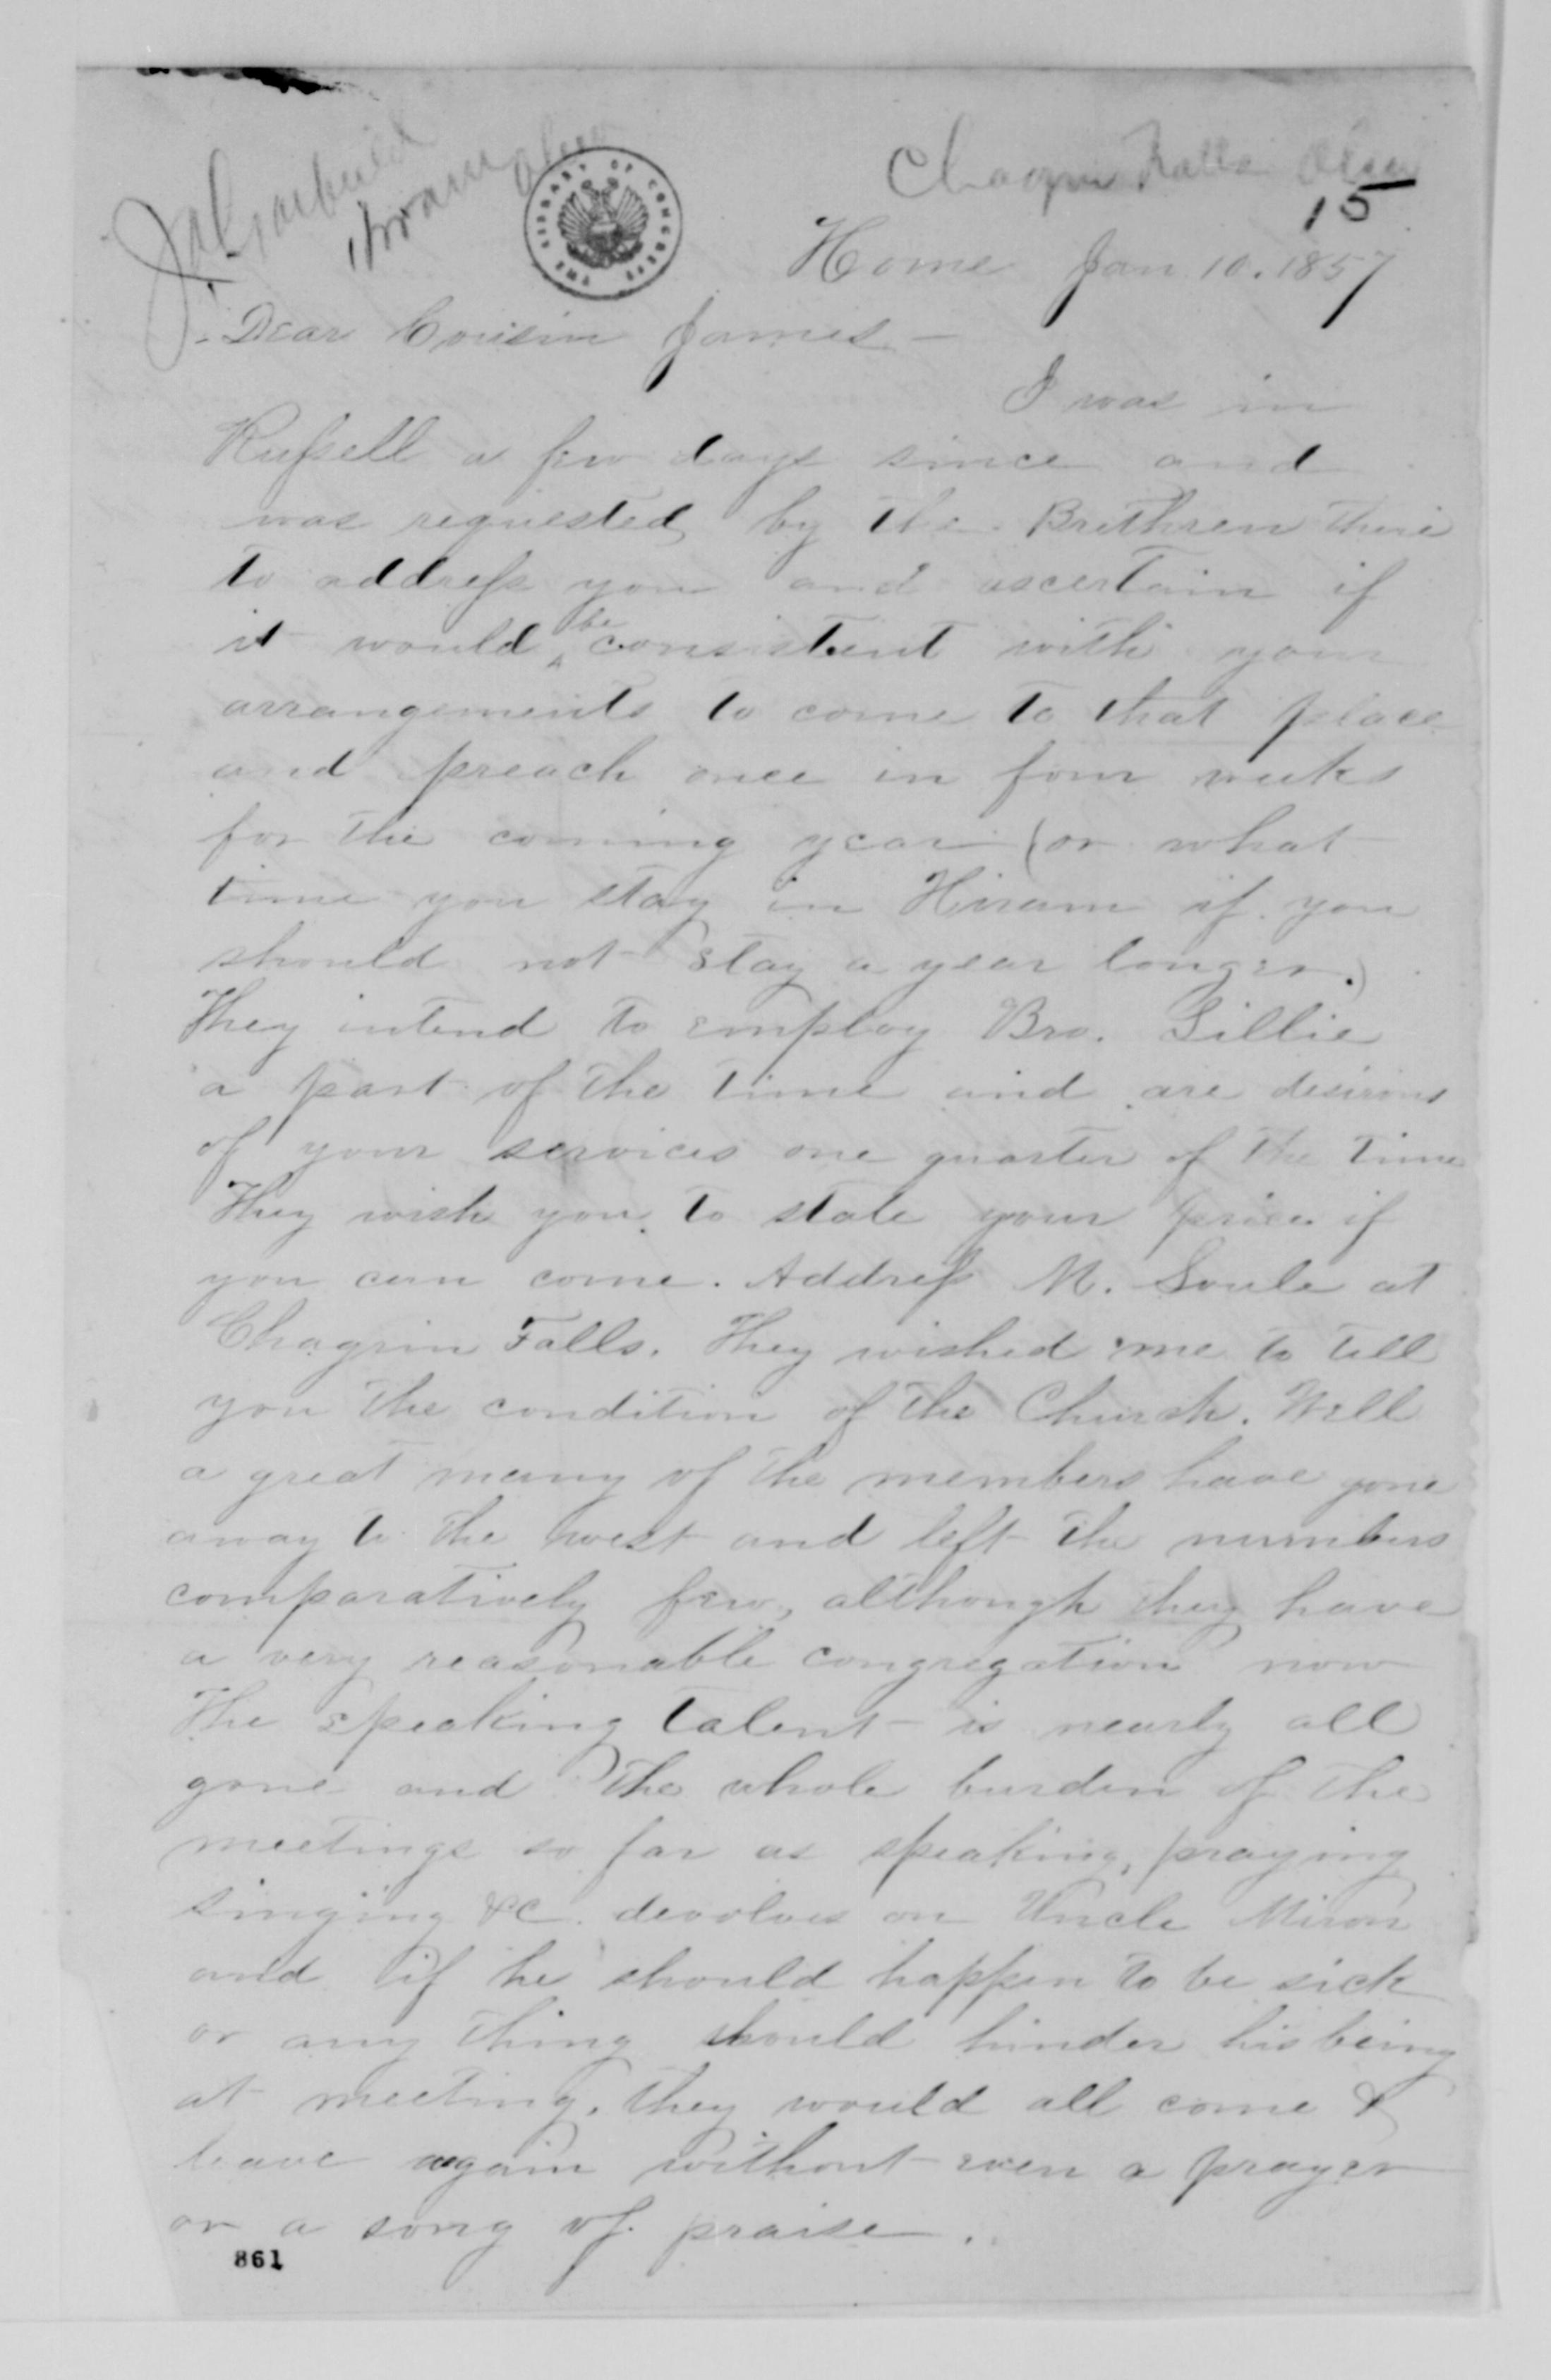 J A Garfield
Hiram Ohio
THE LIBRARY OF CONGRESS
Chagrin Falls Ohio
15
Home Jan. 10. 1857
Dear Cousin James –
I was in
Russell a few days since and
was requested by the Brethren there
to address you and ascertain if
it would be consistent with your
arrangements to come to that place
and preach once in four weeks
for the coming year (or what
time you stay in Hiram if you
should not stay a year longer.)
They intend to employ Bro. Lillie
a part of the time and are desirous
of your services one quarter of the time
They wish you to state your price if
you can come. Address M. Soule at
Chagrin Falls. They wished me to tell
you the condition of the Church. Well
a great many of the members have gone
away to the west and left the numbers
comparatively few, although they have
a very reasonable congregation now
The speaking talent is nearly all
gone and the whole burden of the
meetings so far as speaking, praying
singing &c. devolves on Uncle Miron
and if he should happen to be sick
or any thing should hinder his being
at meeting, they would all come &
leave again without even a prayer
or a song of praise.
861